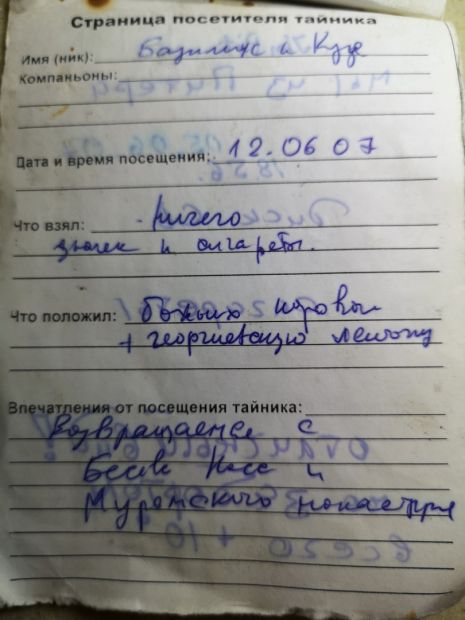 Страница посетителя тайника
Имя (ник): Базилиус и Кузе
Компаньоны:
Дата и время посещения: 12.06 07
Что взял: ничего
значек и сигареты.
Что положил: божью корову
+ георгиевскую ленточку
Впечатления от посещения тайника:
Возвращаемся с
Бесов Носс и
Муромского монастыря